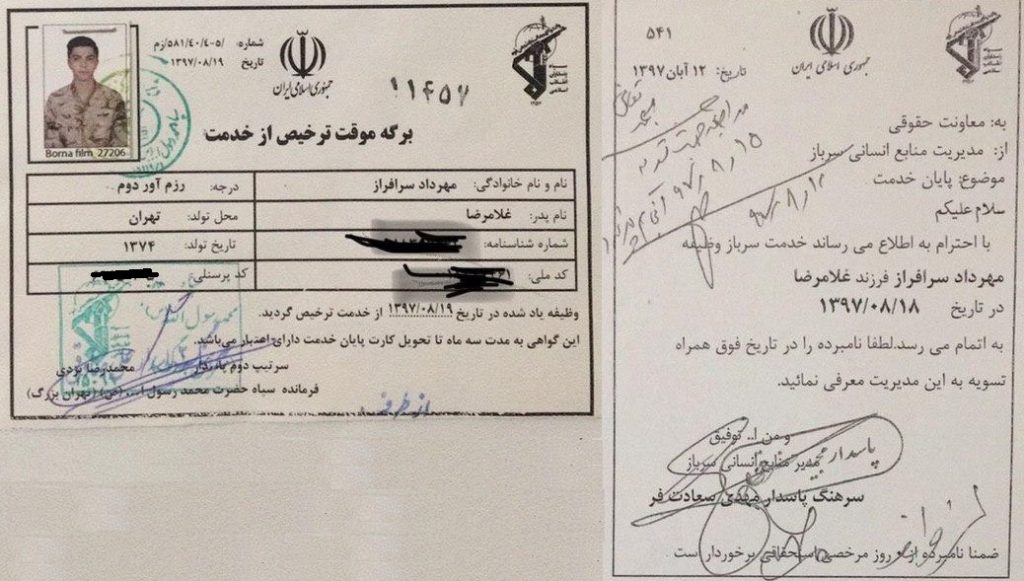 شماره: /۵-۵۸۱/۴۰/۴/زم
تاریخ ۱۳۹۷/۰۸/۱۹
جمهوری اسلامی ایران
۱۱۴۵۷
برگه موقت ترخیص از خدمت
Borna film 27206
نام و نام خانوادگی: مهرداد سرافراز درجه: رزم آور دوم
نام پدر: غلامرضا محل تولد: تهران
شماره شناسنامه: تاریخ تولد: ۱۳۷۴
کد ملی: کد پرسنلی:
وظیفه یاد شده در تاریخ ۱۳۹۷/۰۸/۱۹ از خدمت ترخیص گردید.
این گواهی به مدت سه ماه تا تحویل کارت پایان خدمت دارای اعتبار می‌باشد.
سرتیپ دوم پاسدار محمدرضا یزدی
فرمانده سپاه حضرت محمد رسول ا...(ص) (تهران بزرگ)
از طرف
۵۴۱
جمهوری اسلامی ایران
تاریخ: ۱۲ آبان ۱۳۹۷
به: معاونت حقوقی
از: مدیریت منابع انسانی سرباز
موضوع: پایان خدمت
سلام علیکم
با احترام به اطلاع می رساند خدمت سرباز وظیفه
مهرداد سرافراز فرزند غلامرضا
در تاریخ ۱۳۹۷/۰۸/۱۸
به اتمام می رسد.لطفا نامبرده را در تاریخ فوق همراه
تسویه به این مدیریت معرفی نمائید.
و من ا.. توفیق
مدیر منابع انسانی سرباز
سرهنگ پاسدار مهدی سعادت فر
ضمنا نامبرده از روز مرخصی استحقاقی برخوردار است